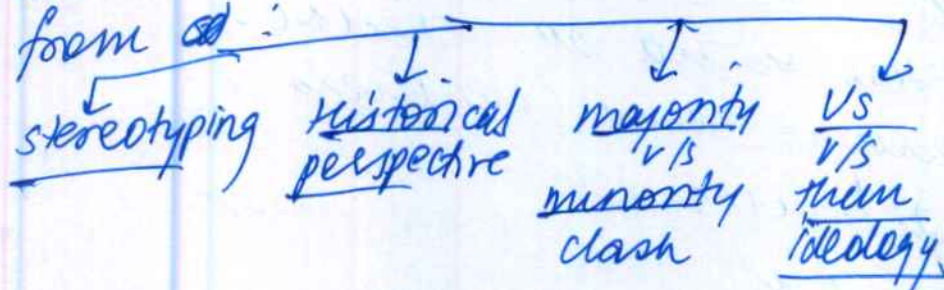 from :
stereotyping Historical perspective majority v/s minority clash US v/s them ideology.